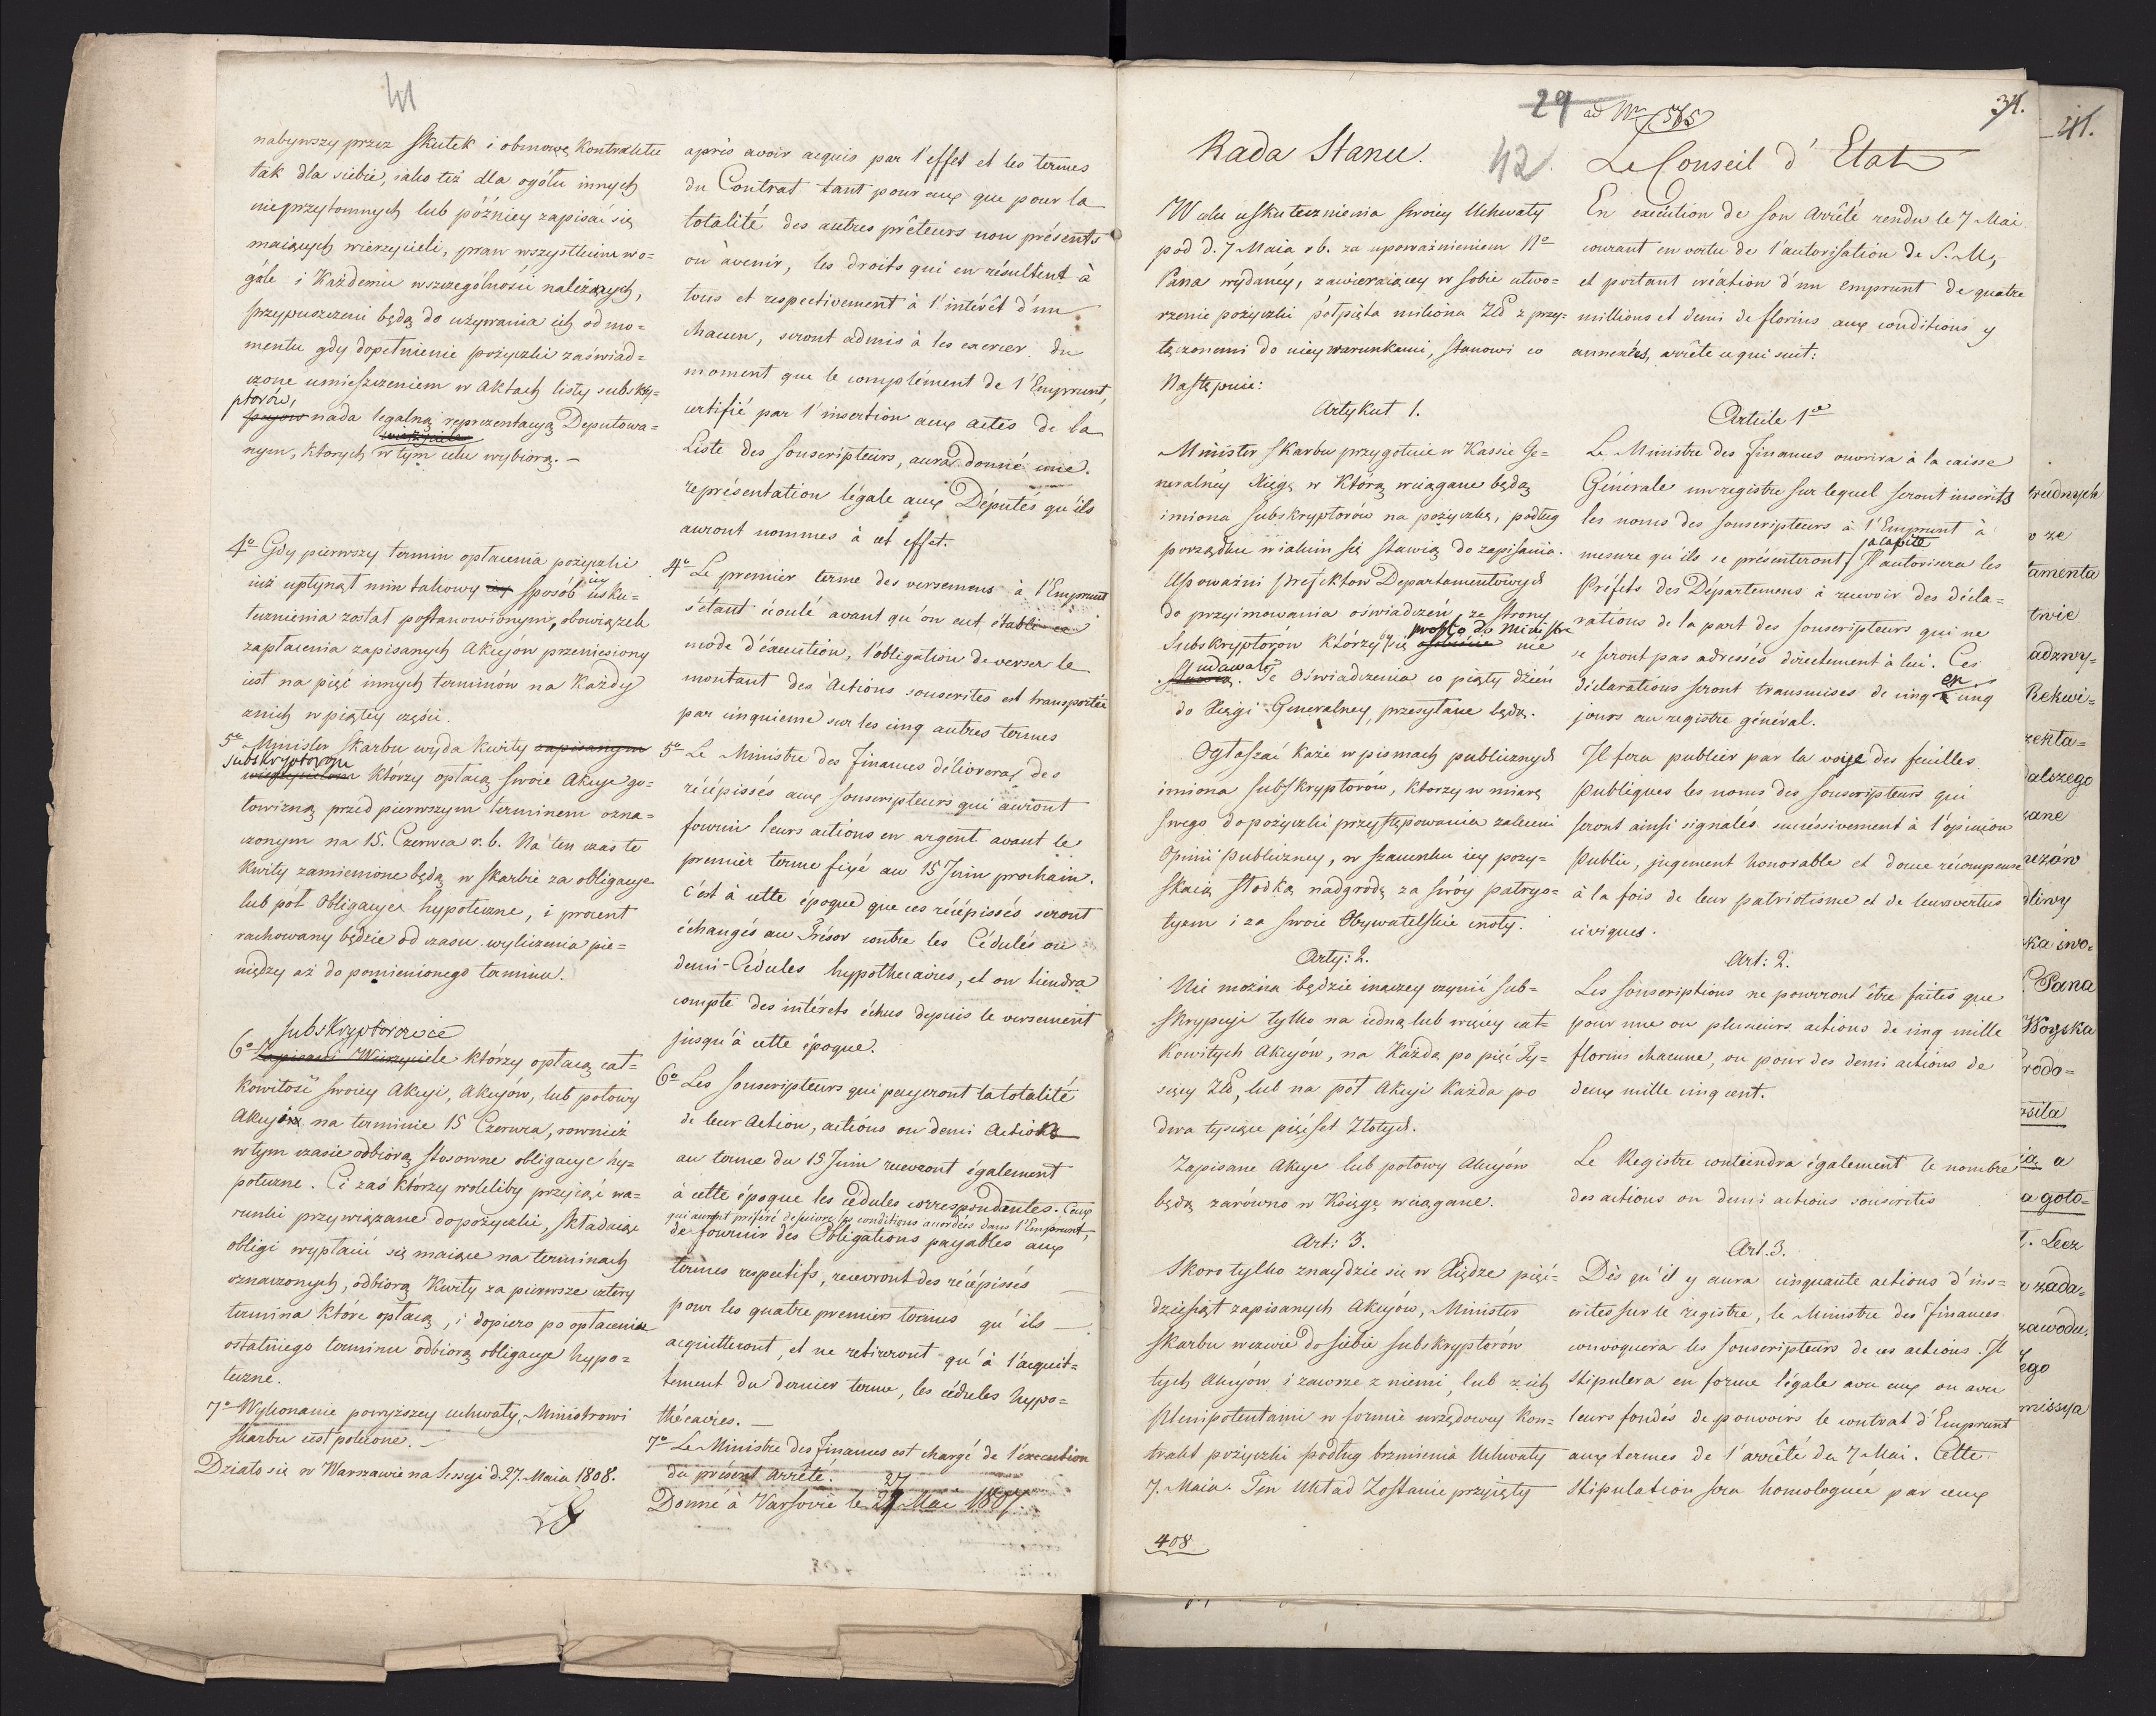 41
nabywszy przez skutek i obmowę Kontraktu
tak dla siebie, iako też dla ogółu innych
nieprzytomnych lub późniey zapisać się
maiących wierzycieli, praw wszystkim wo=
góle i Każdemu wszczególności należących,
przypuszczeni będą do używania ich od mo=
mentu gdy dopełnienie pożyczki zaświad=
czone umieszczeniem w Aktach listy subskry=
ptorów,
nada legalną reprezentacyą Deputowa=
nym, których w tym celu wybiorą. —
4o Gdy pierwszy termin opłacenia pożyczki
iuż upłynął nim takowy iey sposób usku=
tecznienia został postanowionym, obowiązek
zapłacenia zapisanych Akcyów przeniesiony
iest na pięć innych terminów na Każdy
znich w piątey części.
5o Minister Skarbu wyda kwity zapisanym
Subskryptorom
wierzycielom którzy opłacą swoie Akcye go=
towizną przed pierwszym terminem ozna=
czonym na 15. Czerwca r. b. Na ten czas te
kwity zamienione będą w skarbie za obligacye
lub pół Obligacye hypoteczne, i procent
rachowany będzie od czasu wyliczenia pie=
niędzy aż do pomienionego terminu.
Subskryptorowie
6o Zapisani Wierzyciele którzy opłacą cał=
kowitość swoiey Akcyi, Akcyów, lub połowy
Akcyów na terminie 15 Czerwca, rownież
w tym czasie odbiorą stosowne obligacye hy=
poteczne. Ci zaś którzy woleliby przyiąć wa=
runki przywiązane do pożyczki, składaiąc
obligi wypłacić się maiące na terminach
oznaczonych, odbiorą Kwity za pierwsze cztery
termina które opłacą, i dopiero po opłaceniu
ostatniego terminu odbiorą obligacye hypo=
teczne.
7o Wykonanie powyższey uchwały, Ministrowi
Skarbu iest polecone. —
Działo się w Warszawie na Sessyi d. 27. Maia 1808.
après avoir acquis par l'effet et les termes
du Contrat tant pour eux que pour la
totalité des autres prêteurs non présents
ou àvenir, les droits qui en résultent à
tous et respectivement à l'intérêt d'un
chacun, seront admis à les exercer du
moment que le complément de l'Emprunt,
certifié par l'insertion aux actes de la
Liste des Souscripteurs, aura donné une
représentation légale aux Députés qu'ils
auront nommés à cet effet.
4o Le premier terme des versemens à l'Emprunt
s'étant écoulé avant qu'on eut établi ce
mode d'éxecution, l'obligation de verser le
montant des Actions souscrites est transportée
par cinquieme sur les cinq autres termes
5o Le Ministre des Finances délivrera des
récépissés aux Souscripteurs qui auront
fourni leurs actions en argent avant le
premier terme fixé au 15 Juin prochain.
C'est à cette époque que ces récépissés seront
échangés au Trésor contre les Cédules ou
demi-Cédules hypothecaires, et on tiendra
compte des intérets échus depuis le versement
jusqu'à cette époque.
6o Les Souscripteurs qui payeront la totalité
de leur Action, actions ou demi Actions
au terme du 15 Juin recevront également
à cette époque les cédules correspondantes. Ceux
qui auront préféré de suivre les conditions accordées dans l'Emprunt,
de fournir des Obligations payables aux
termes respectifs, recevront des récépissés
pour les quatre premiers termes qu'ils
acquitteront, et ne retireront qu'à l'acquit=
tement du dernier terme, les cédules hypo=
thécaires. —
7o Le Ministre des Finances est chargé de l'execution
du présent Arrêté.
27
Donné à Varsovie le 27 Mai 1807.
29 ad Nr 565 34.
42
Rada Stanu.
W celu uskutecznienia swoiey Uchwały
pod d. 7 Maia r b. za upoważnieniem No
Pana wydanéy, zawieraiącey w sobie utwo=
rzenie pożyczki półpięta miliona Zł z przy=
łączonemi do niey warunkami, stanowi co
Następuie:
Artykuł 1.
Minister Skarbu przygotuie w Kassie Ge=
neralnéy Xięgę w Którą wciągane będą
imiona Subskryptorów na pożyczkę, podług
porządku w iakim się stawią do zapisania.
Upoważni Prefektow Departamentowych
do przyimowania oświadczeń ze strony
Subskryptorow którzy by się prosto do Ministra nie
udawali
Te Oświadczenia co piąty dzień
do Xięgi Generalney przesyłane będą.
Ogłaszać każe w pismach publicznych
imiona Subskryptorów, którzy w miarę
swego do pożyczki przystępowania zaleceni
Opinii Publiczney, w szacunku iey pozy=
skaią słodką nadgrodę za swóy patryo=
tyzm i za swoie Obywatelskie cnoty.
Arty: 2.
Nie można będzie inaczey czynić sub=
skrypcyi tylko na iedną lub więcey cał=
kowitych Akcyów, na Każdą po pięć Ty=
sięcy Zł, lub na pół Akcyi każda po
dwa tysiące pięćset Złotych.
Zapisane Akcye lub połowy Akcyów
będą zarówno w Księgę wciągane.
Art: 3.
Skoro tylko znaydzie się w Xiędze pięć=
dziesiąt zapisanych Akcyów, Minister
Skarbu wezwie do siebie subskryptorów
tych Akcyów i zawrze z niemi, lub z ich
Plenipotentami w formie urzędowey Kon=
trakt pożyczki podług brzmienia Uchwały
7. Maia. Ten Układ Zostanie przyięty
408
Le Conseil d'Etat
En exécution de son Arrêté rendu le 7 Mai
courant en vertu de l'autorisation de S. M,
et portant création d'un emprunt de quatre
millions et demi de florins aux conditions y
annexées, arrête ce qui suit:
Article 1er
Le Ministre des Finances ouvrira à la caisse
Générale un registre sur lequel seront inscrits
les noms des souscripteurs à l'Emprunt à
a capite
mesure qu'ils se présenteront / Il autorisera les
Préfets des Départemens à recevoir des décla=
rations de la part des souscripteurs qui ne
se seront pas adressés directement à lui. Ces
déclarations seront transmises de cinq en cinq
jours au registre général.
Il fera publier par la voye des feuilles
Publiques les noms des souscripteurs qui
seront ainsi signalés successivement à l'opinion
Public, jugement honorable et douce récompense
à la fois de leur patriotisme et de leurs vertus
civiques.
Art: 2.
Les sonscriptions ne pourront être faites que
pour une ou plusieurs actions de cinq mille
florins chacune, ou pour des demi actions de
deux mille cinq cent.
Le Registre conteindra également le nombre
des actions ou demi actions souscrites
Art. 3.
Dès qu'il y aura cinquante actions d'ins=
crites sur le registre, le Ministre des Finances
convoquera les souscripteurs de ces actions. Il
Stipulera en forme légale avec eux ou avec
leurs fondés de pouvoirs le contrat d'Emprunt
aux termes de l'arrêté du 7 Mai. Cette
Stipulation sera homologuée par ceux
41.
trudnych
o ze
tamenta
twie
adzwy=
Rekwi=
zekta=
dalszego
zane
dliwy
Pana
Woyska
rodo=
a goto=
Lecz
zawodu,
ego
missya